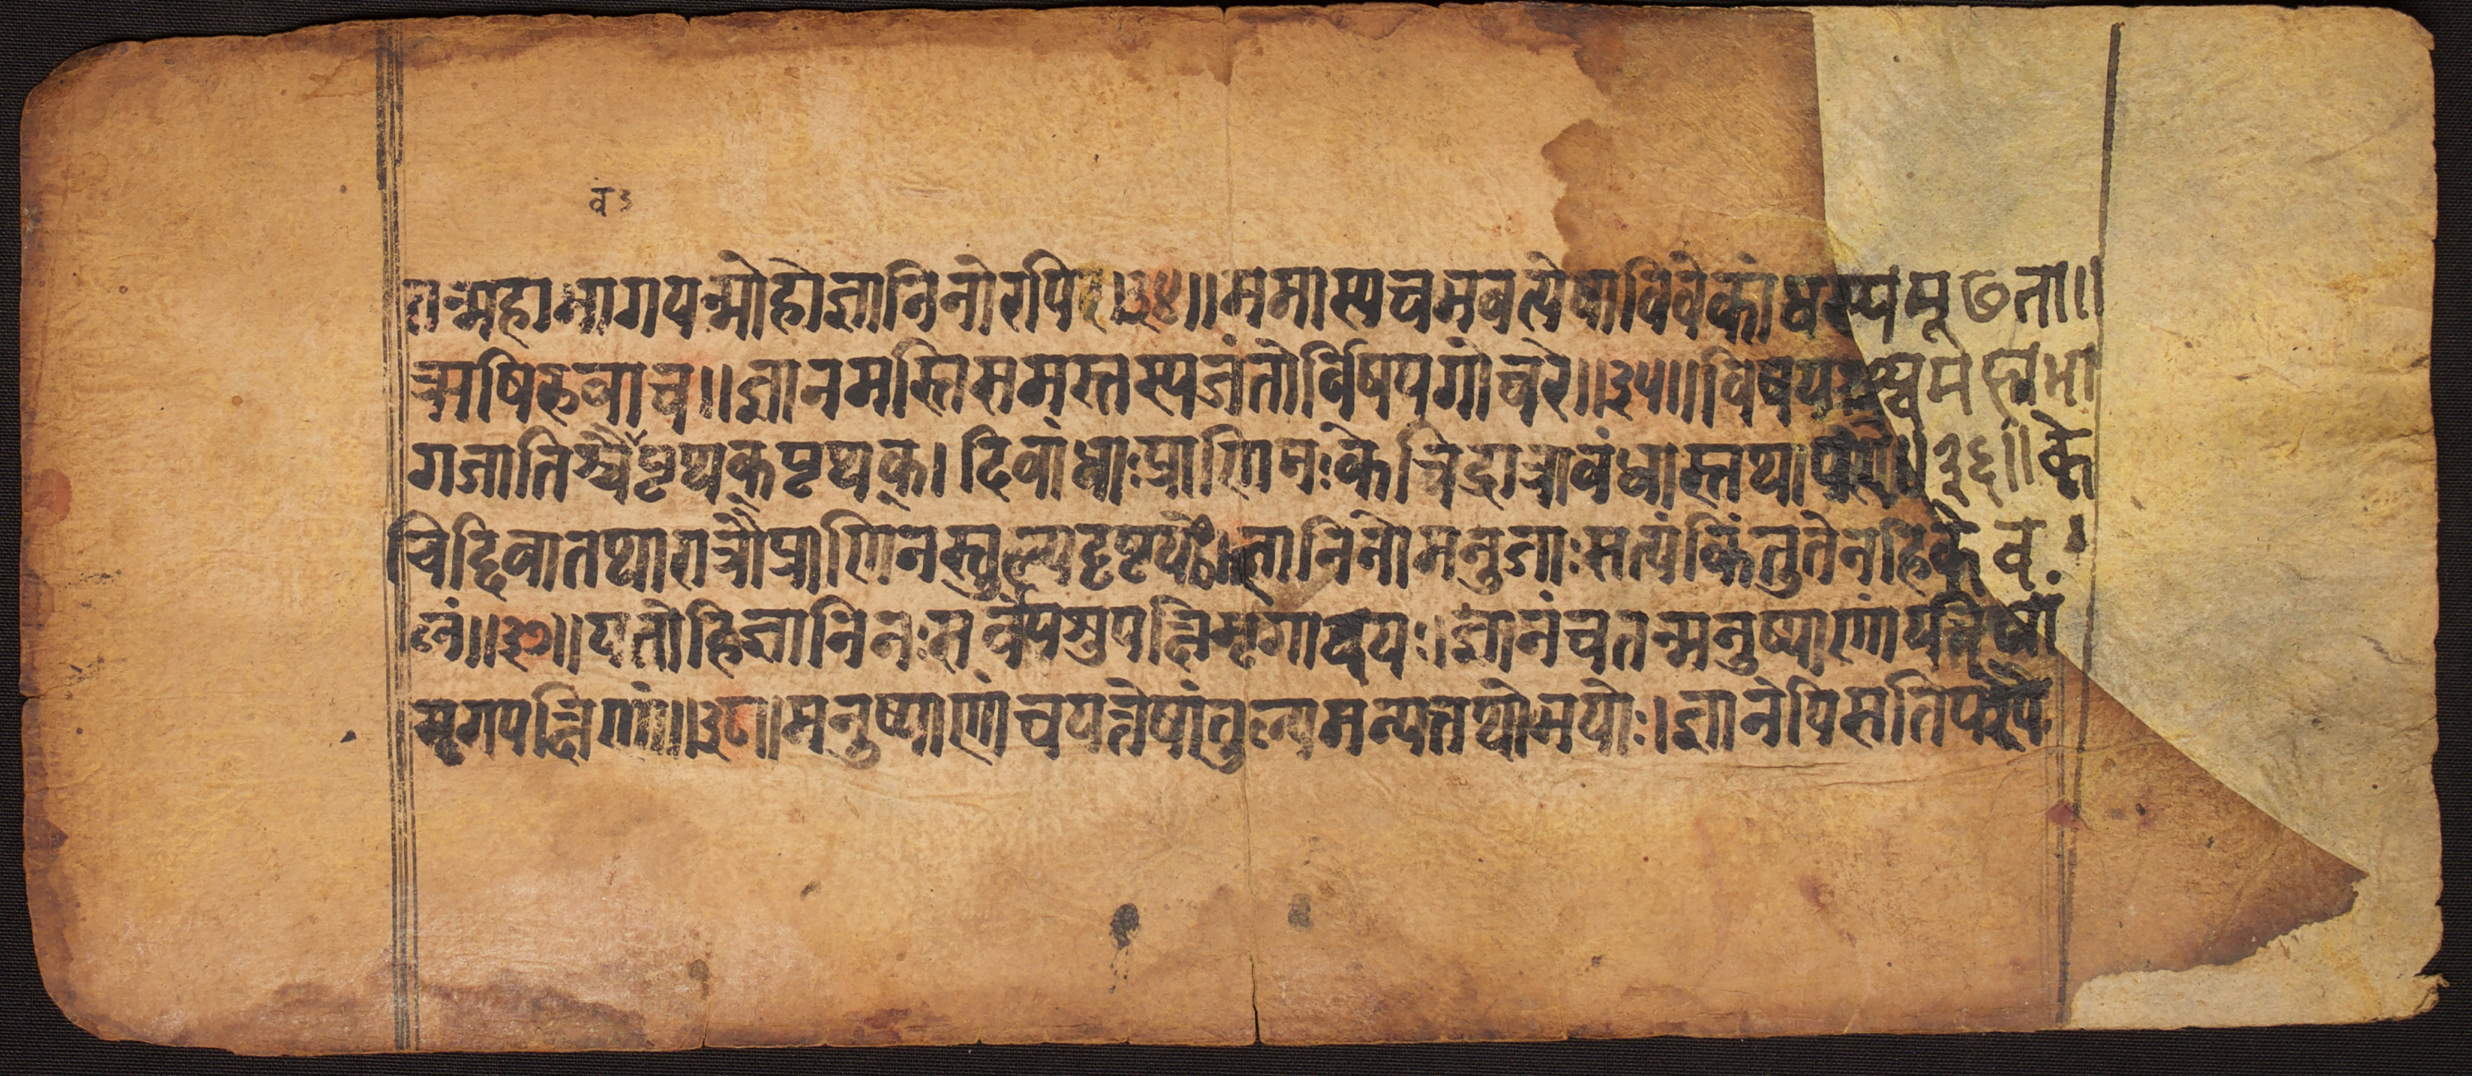 तन्महाभागयन्मोहोज्ञानिनोरपि॥३४॥ममास्यचभवत्येषाविवेकांधस्यमूढता॥
ऋषिरुवाच॥ज्ञानमस्तिसमस्तस्यजंतोर्विषयगोचरे॥३५॥विषयश्चमहाभा
गजातिश्चैवंपृथक्पृथक्।दिवांधाःप्राणिनःकेचिद्रात्रावंधास्तथापरे॥३६॥के
चिद्दिवातथारात्रौप्राणिनस्तुल्यदृष्टयः।ज्ञानिनोमनुजाःसत्यंकिंतुतेनहिकेव
लं॥३७॥यतोहिज्ञानिनःसर्वेपशुपक्षिमृगादयः।ज्ञानंचतन्मनुष्याणांयत्तेषां
मृगपक्षिणां॥३८॥मनुष्याणांचयत्तेषांतुल्यमन्यत्तथोभयोः।ज्ञानेपिसति